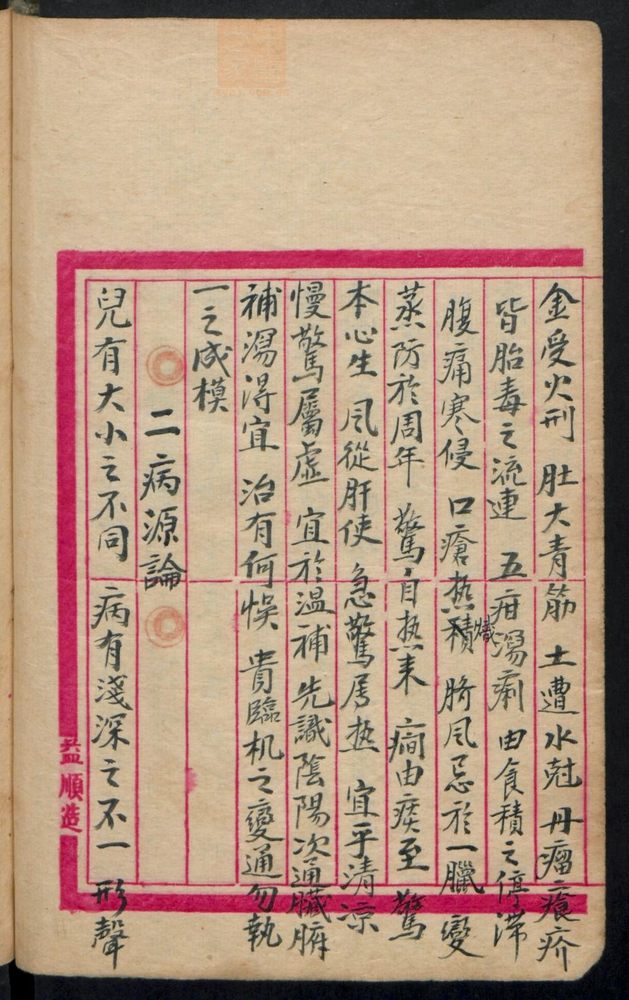 金受火刑 肚大青筋 土遭水尅 丹瘤癮疥
皆胎毒之流連 五疳瀉痢 由食積之停滯
腹痛寒侵 口瘡热積 臍风忌於一臘 變
蒸防於周年 驚自热来 痫由痰至 驚
本心生 风從肝使 急驚属热 宜乎清凉
慢驚屬虛 宜於温補 先識陰陽 次通臟腑
補瀉得宜 治有何悮 貴臨机之變通 勿執
一之成模
二病源論
兒有大小之不同 病有淺深之不一 形聲
益順造